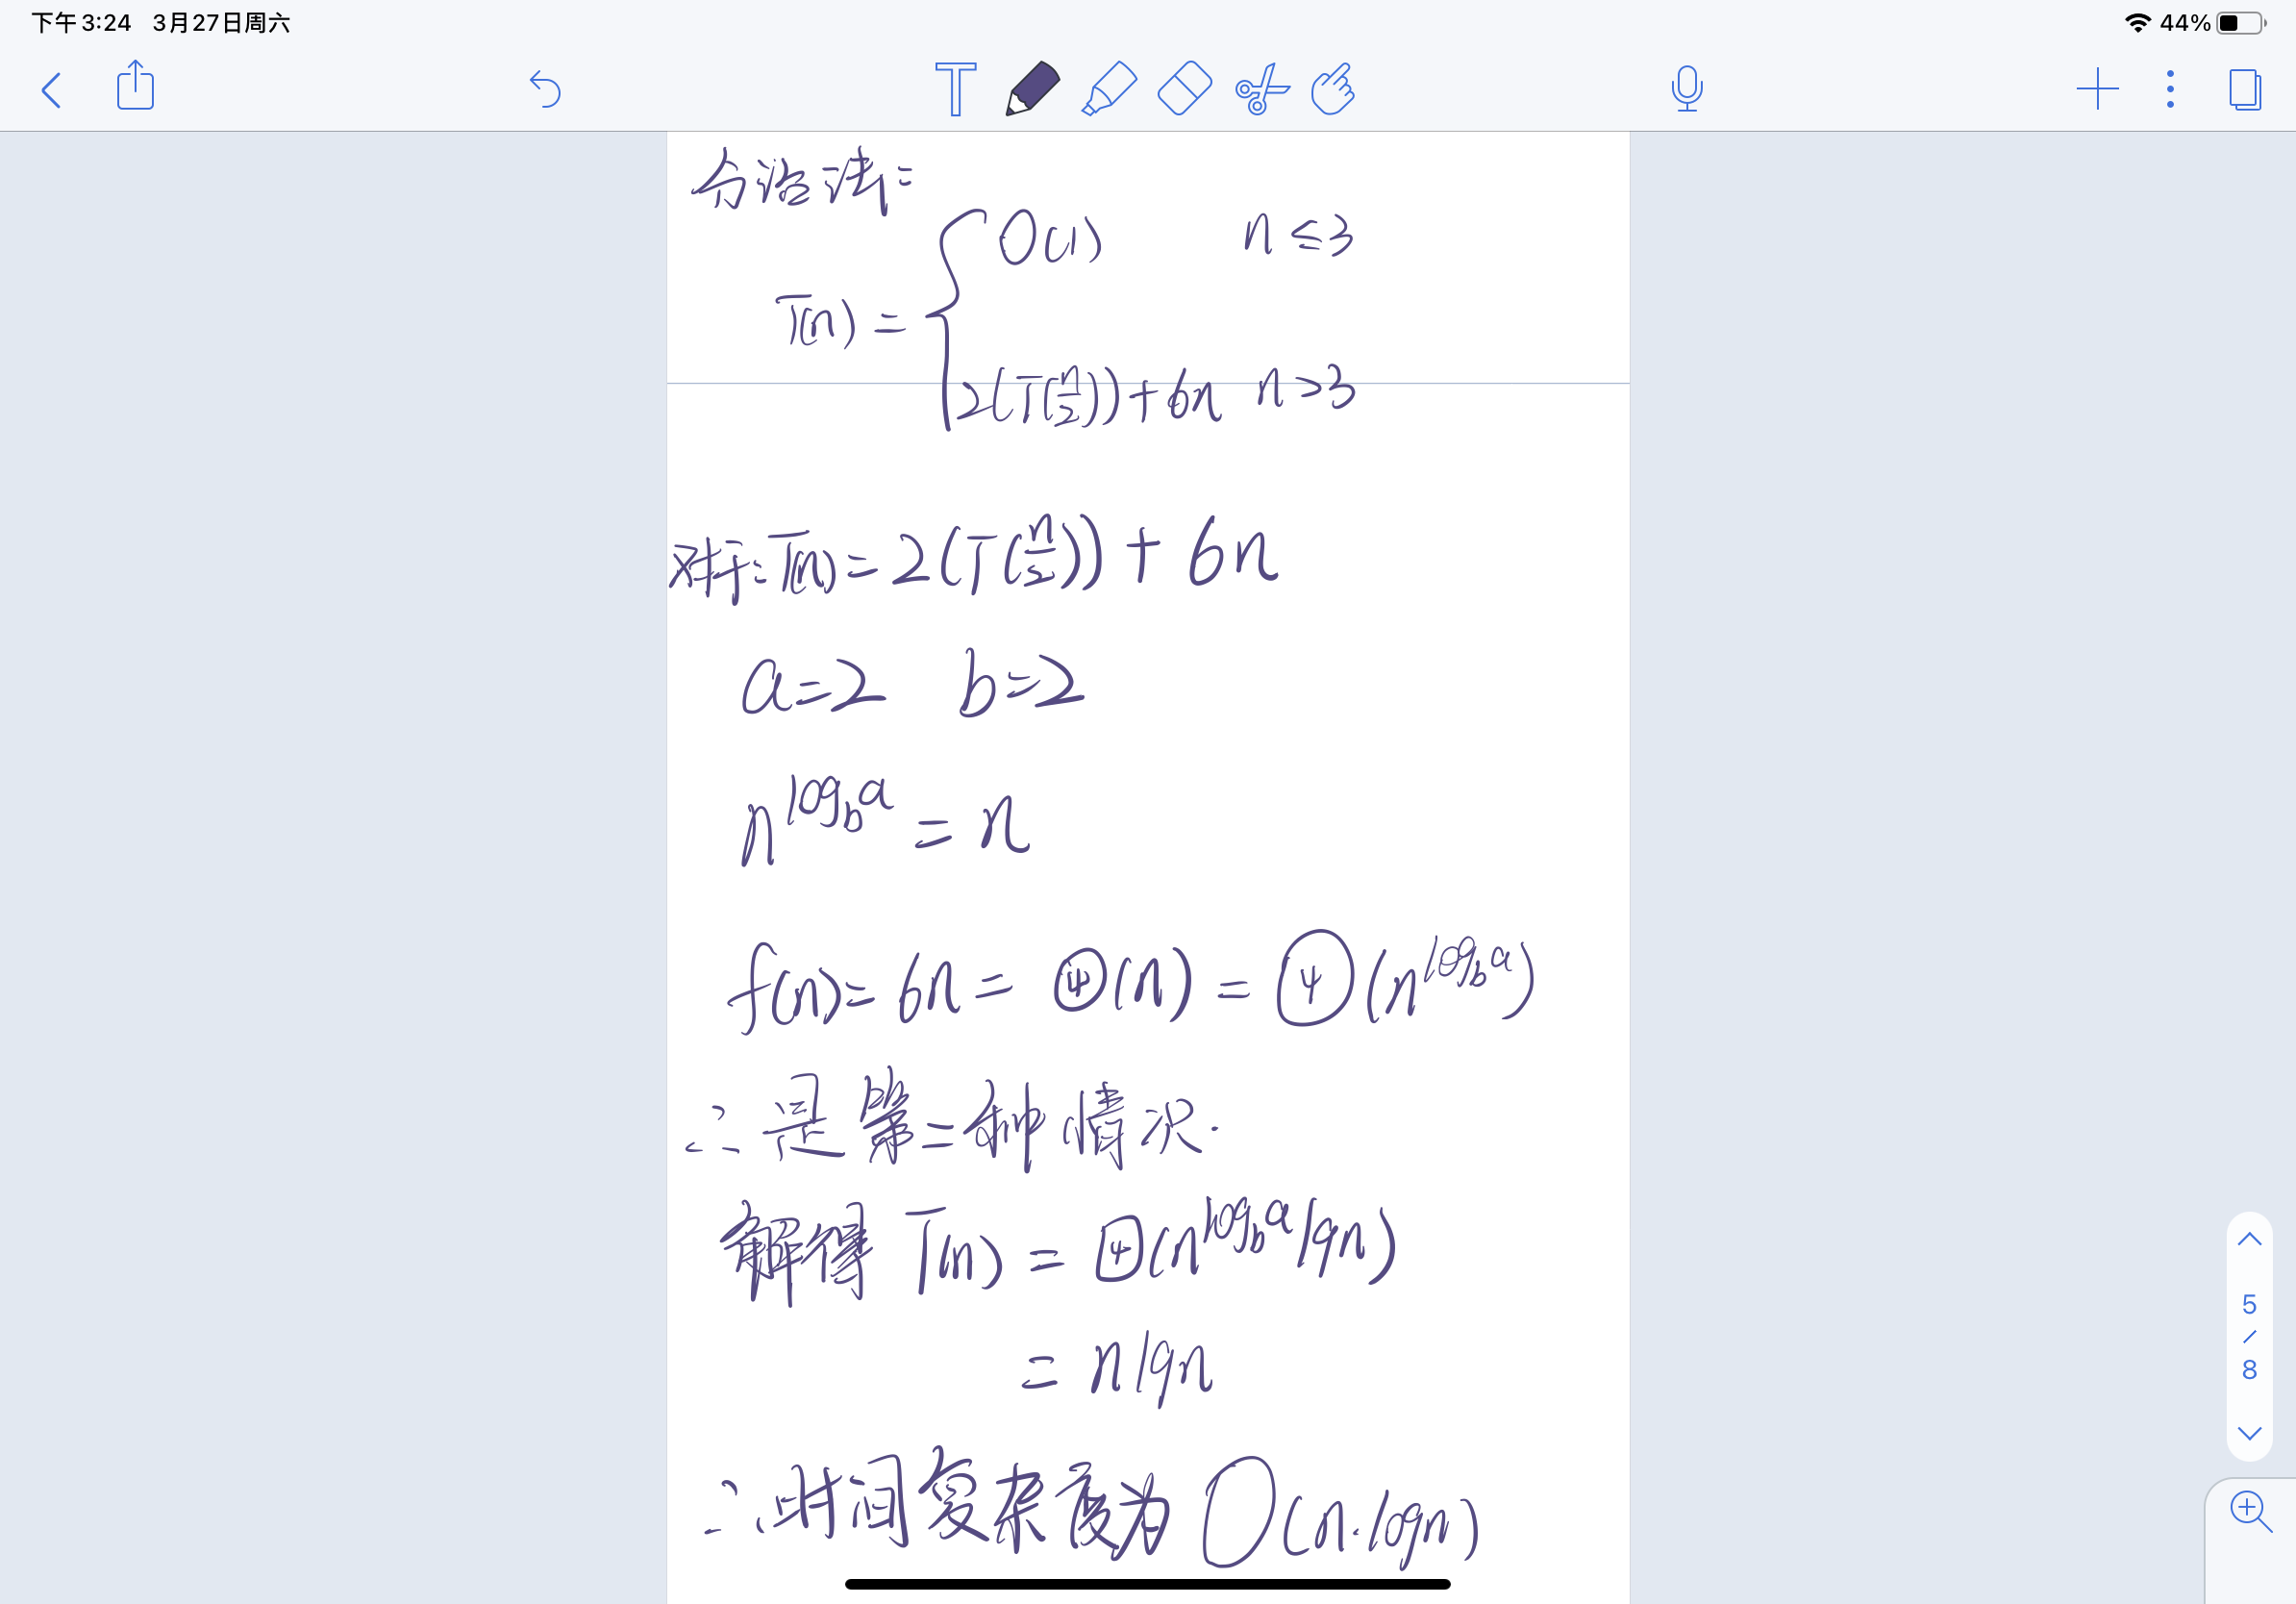 下午3:24 3月27日周六
44%
T
分治法:
O(1) n≤3
T(n) =
2(T(n/2))+6n n>3
对于:T(n)=2(T(n/2))+6n
a=2 b=2
n^log_b a = n
f(n)=6n=Θ(n)=Θ(n^log_b a)
∴ 是第二种情况.
解得 T(n) = Θ(n^log_b a lgn)
= nlgn
∴时间复杂度为 O(n·logn)
5
/
8